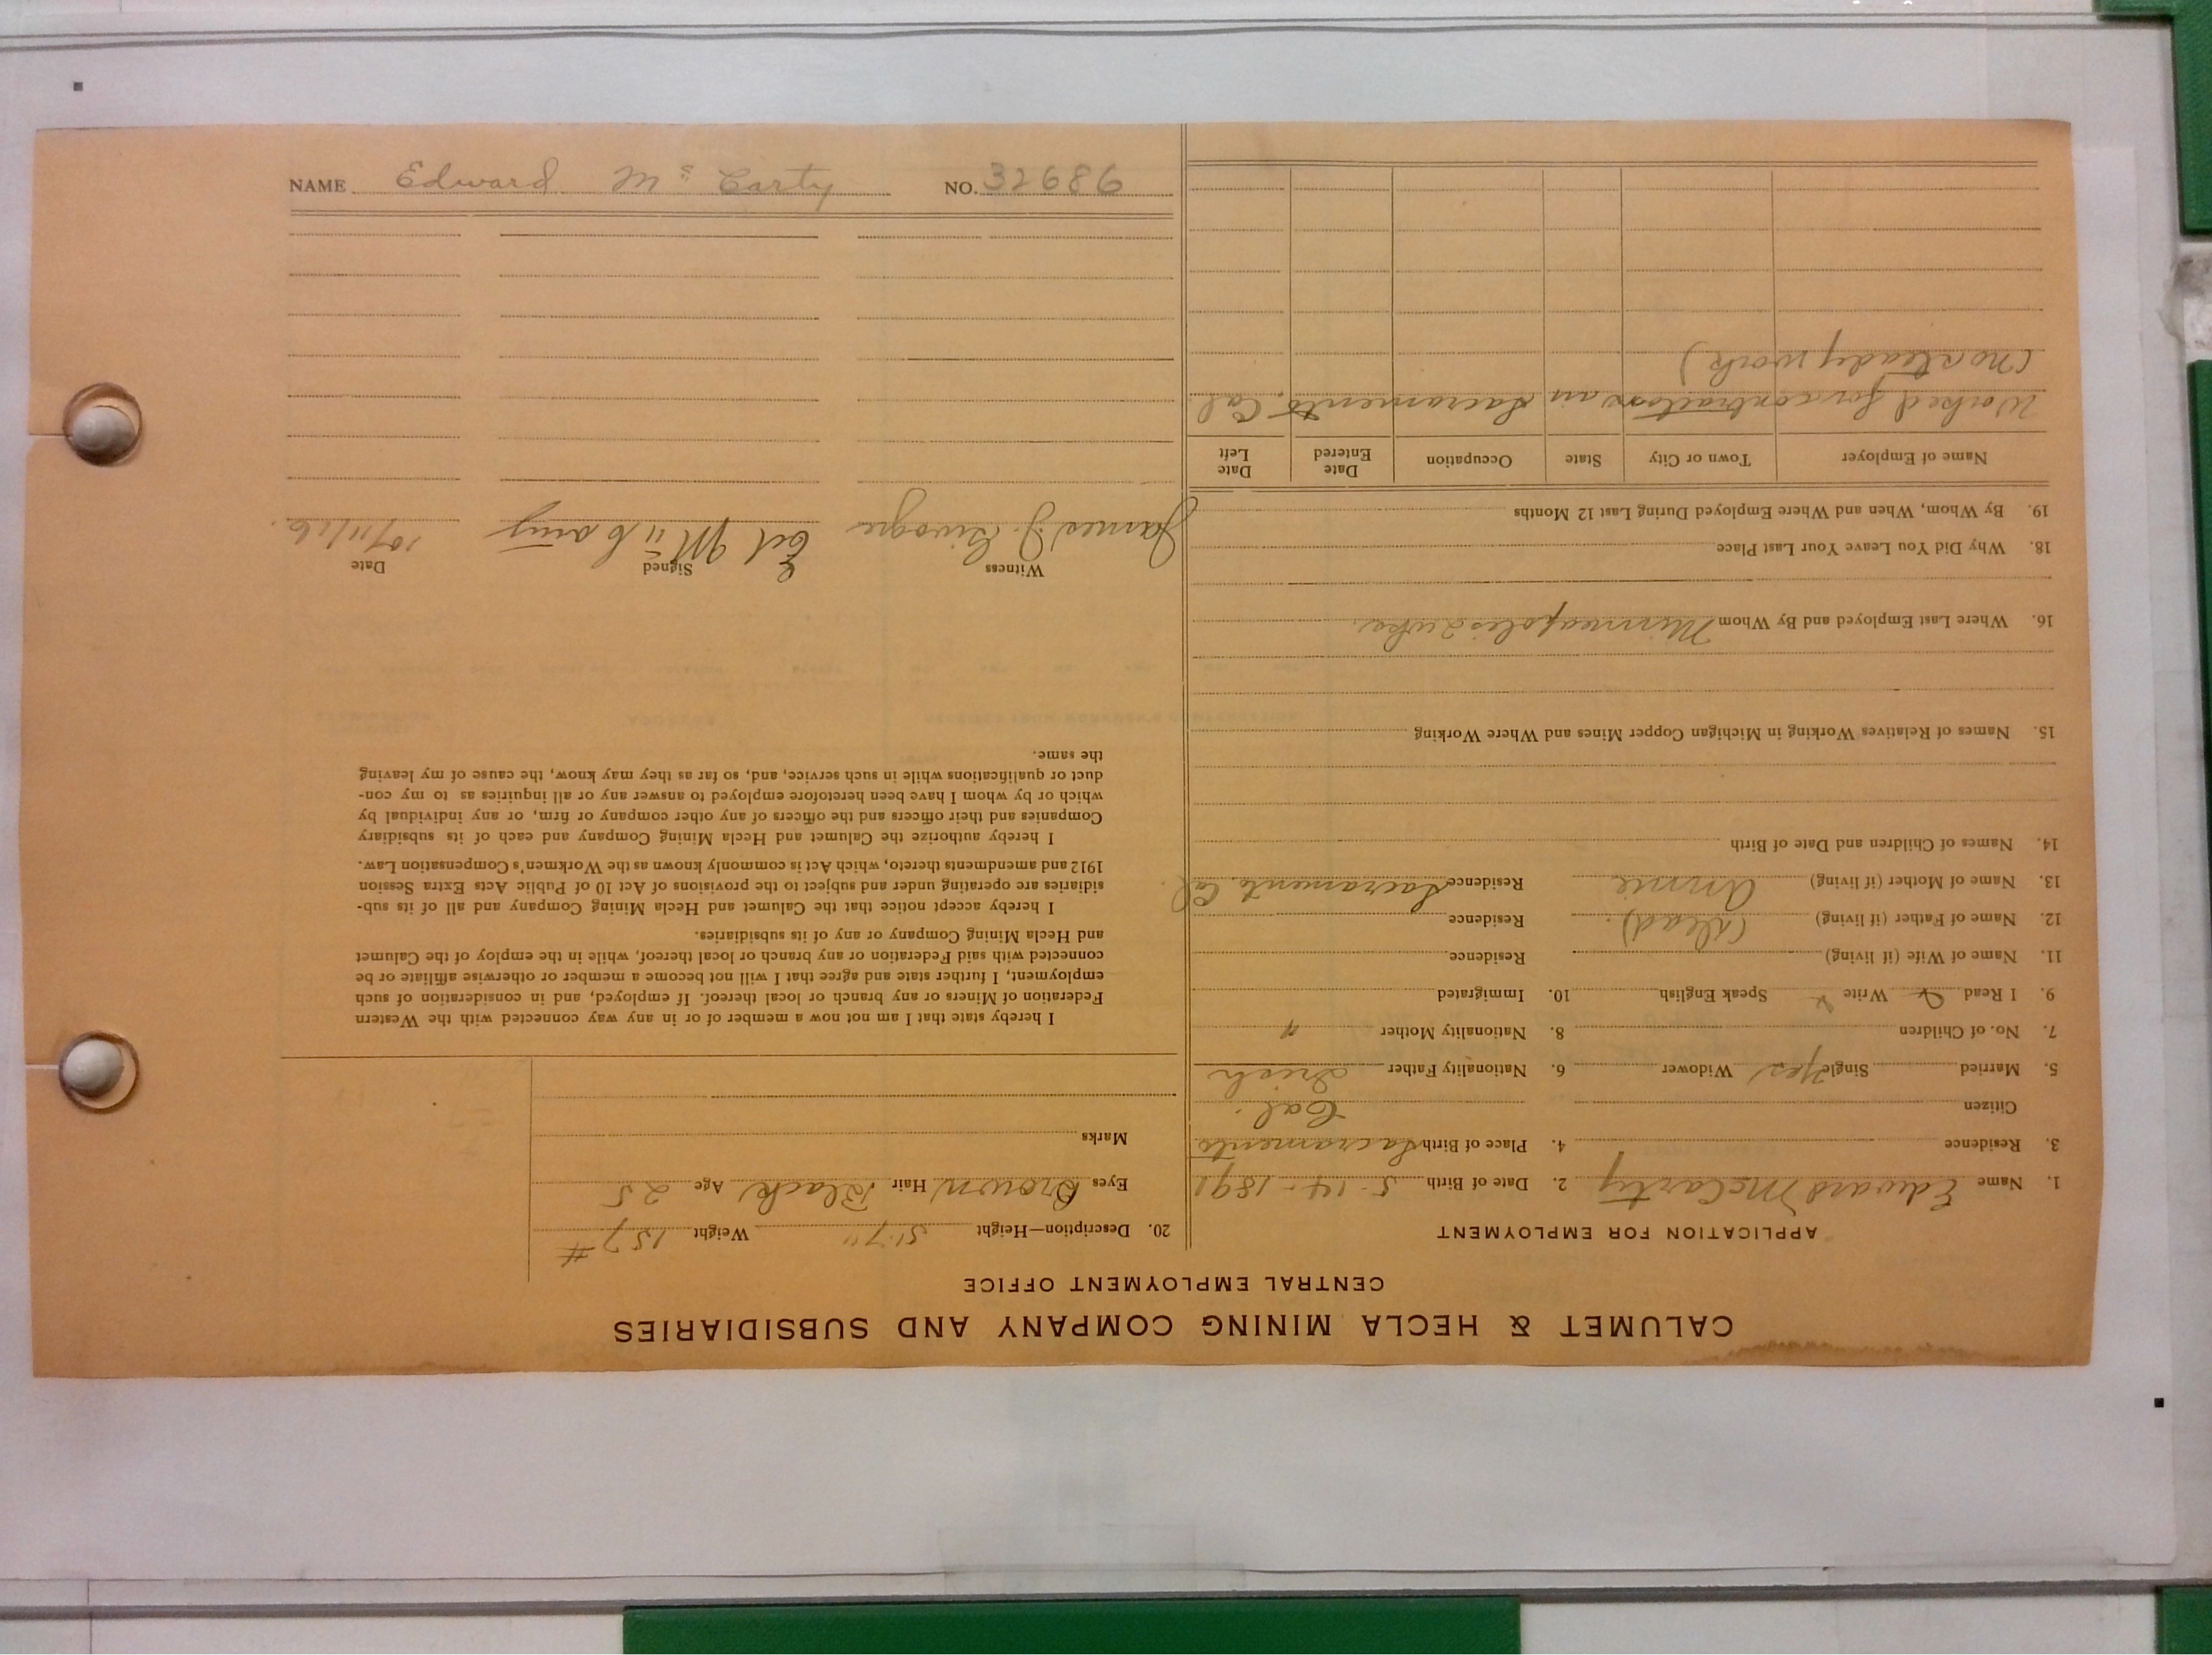 CALUMET & HECLA MINING COMPANY AND SUBSIDIARIES
CENTRAL EMPLOYMENT OFFICE
APPLICATION FOR EMPLOYMENT
1. Name Edward McCarty 2. Date of Birth 5-14-1891
3. Residence 4. Place of Birth Sacramento
Citizen Cal.
5. Married Single Yes Widower 6. Nationality Father Irish
7. No. of Children 8. Nationality Mother "
9. I Read Write Speak English 10. Immigrated
11. Name of Wife (if living) Residence
12. Name of Father (if living) (dead). Residence
13. Name of Mother (if living) Annie Residence Sacramento, Cal.
14. Names of Children and Date of Birth
15. Names of Relatives Working in Michigan Copper Mines and Where Working
16. Where Last Employed and By Whom Minneapolis
18. Why Did You Leave Your Last Place
19. By Whom, When and Where Employed During Last 12 Months
Name of Employer Town or City State Occupation Date Entered Date Left
Worked for contractors in Sacramento, Cal.
(no steady work)
20. Description—Height 5'.7" Weight 157#
Eyes Brown Hair Black Age 25
Marks
I hereby state that I am not now a member of or in any way connected with the Western
Federation of Miners or any branch or local thereof. If employed, and in consideration of such
employment, I further state and agree that I will not become a member or otherwise affiliate or be
connected with said Federation or any branch or local thereof, while in the employ of the Calumet
and Hecla Mining Company or any of its subsidiaries.
I hereby accept notice that the Calumet and Hecla Mining Company and all of its sub-
sidiaries are operating under and subject to the provisions of Act 10 of Public Acts Extra Session
1912 and amendments thereto, which Act is commonly known as the Workmen's Compensation Law.
I hereby authorize the Calumet and Hecla Mining Company and each of its subsidiary
Companies and their officers and the officers of any other company or firm, or any individual by
which or by whom I have been heretofore employed to answer any or all inquiries as to my con-
duct or qualifications while in such service, and, so far as they may know, the cause of my leaving
the same.
Witness Signed Date
James J. Ed Mc Carty
NAME Edward Mc Carty NO. 32686